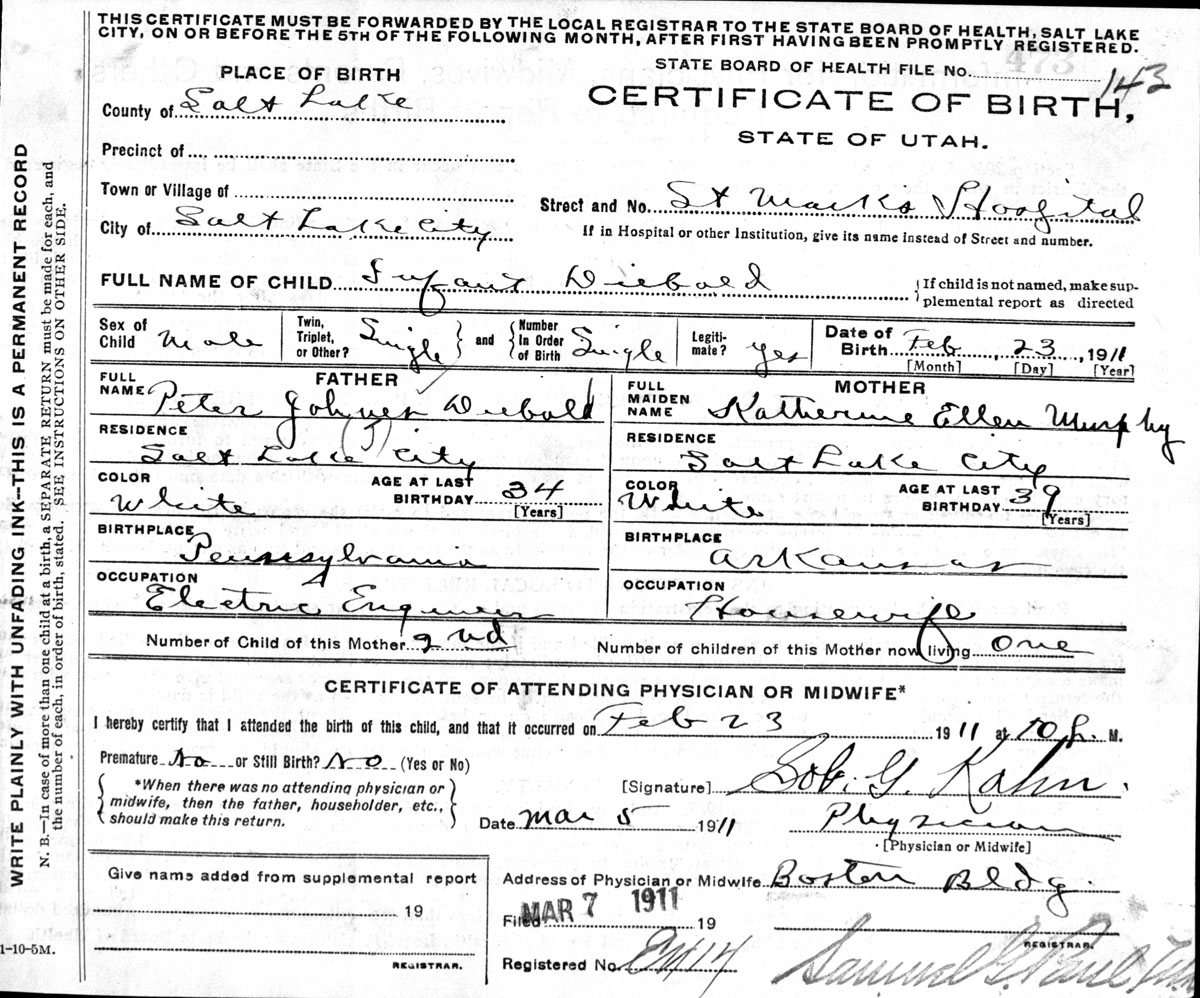 THIS CERTIFICATE MUST BE FORWARDED BY THE LOCAL REGISTRAR TO THE STATE BOARD OF HEALTH, SALT LAKE
CITY, ON OR BEFORE THE 5TH OF THE FOLLOWING MONTH, AFTER FIRST HAVING BEEN PROMPTLY REGISTERED.
STATE BOARD OF HEALTH FILE No. 473 143
PLACE OF BIRTH
CERTIFICATE OF BIRTH,
STATE OF UTAH.
County of Salt Lake
Precinct of
Town or Village of
Street and No. St Marks Hospital
City of Salt Lake City
If in Hospital or other Institution, give its name instead of Street and number.
FULL NAME OF CHILD Infant Diebold
{If child is not named, make sup-
plemental report as directed
Sex of Child Male
Twin, Triplet, or Other? Single } and { Number In Order of Birth Single
Legiti- mate? yes
Date of Birth Feb, 23, 1911
[Month] [Day] [Year]
FATHER
FULL NAME Peter Diebold
(J)
RESIDENCE
Salt Lake City
COLOR White
AGE AT LAST BIRTHDAY 34
[Years]
BIRTHPLACE
Pennsylvania
OCCUPATION
Electric Engineer
MOTHER
FULL MAIDEN NAME Katherine Ellen Murphy
RESIDENCE
Salt Lake City
COLOR White
AGE AT LAST BIRTHDAY 39
[Years]
BIRTHPLACE
Arkansas
OCCUPATION
Housewife
Number of Child of this Mother 2nd
Number of children of this Mother now living one
CERTIFICATE OF ATTENDING PHYSICIAN OR MIDWIFE*
I hereby certify that I attended the birth of this child, and that it occurred on Feb 23 1911 at 10 P. M.
Premature No or Still Birth? No (Yes or No)
*When there was no attending physician or
midwife, then the father, householder, etc.,
should make this return.
[Signature] Sol. G. Kahn.
Date Mar 5 1911
Physician
[Physician or Midwife]
Give name added from supplemental report
19
REGISTRAR.
Address of Physician or Midwife Boston Bldg.
Filed MAR 7 1911 19
REGISTRAR.
Registered No.
Samuel G. Paul
1-10-5M.
WRITE PLAINLY WITH UNFADING INK--THIS IS A PERMANENT RECORD
N. B.—In case of more than one child at a birth, a SEPARATE RETURN must be made for each, and
the number of each, in order of birth, stated. SEE INSTRUCTIONS ON OTHER SIDE.